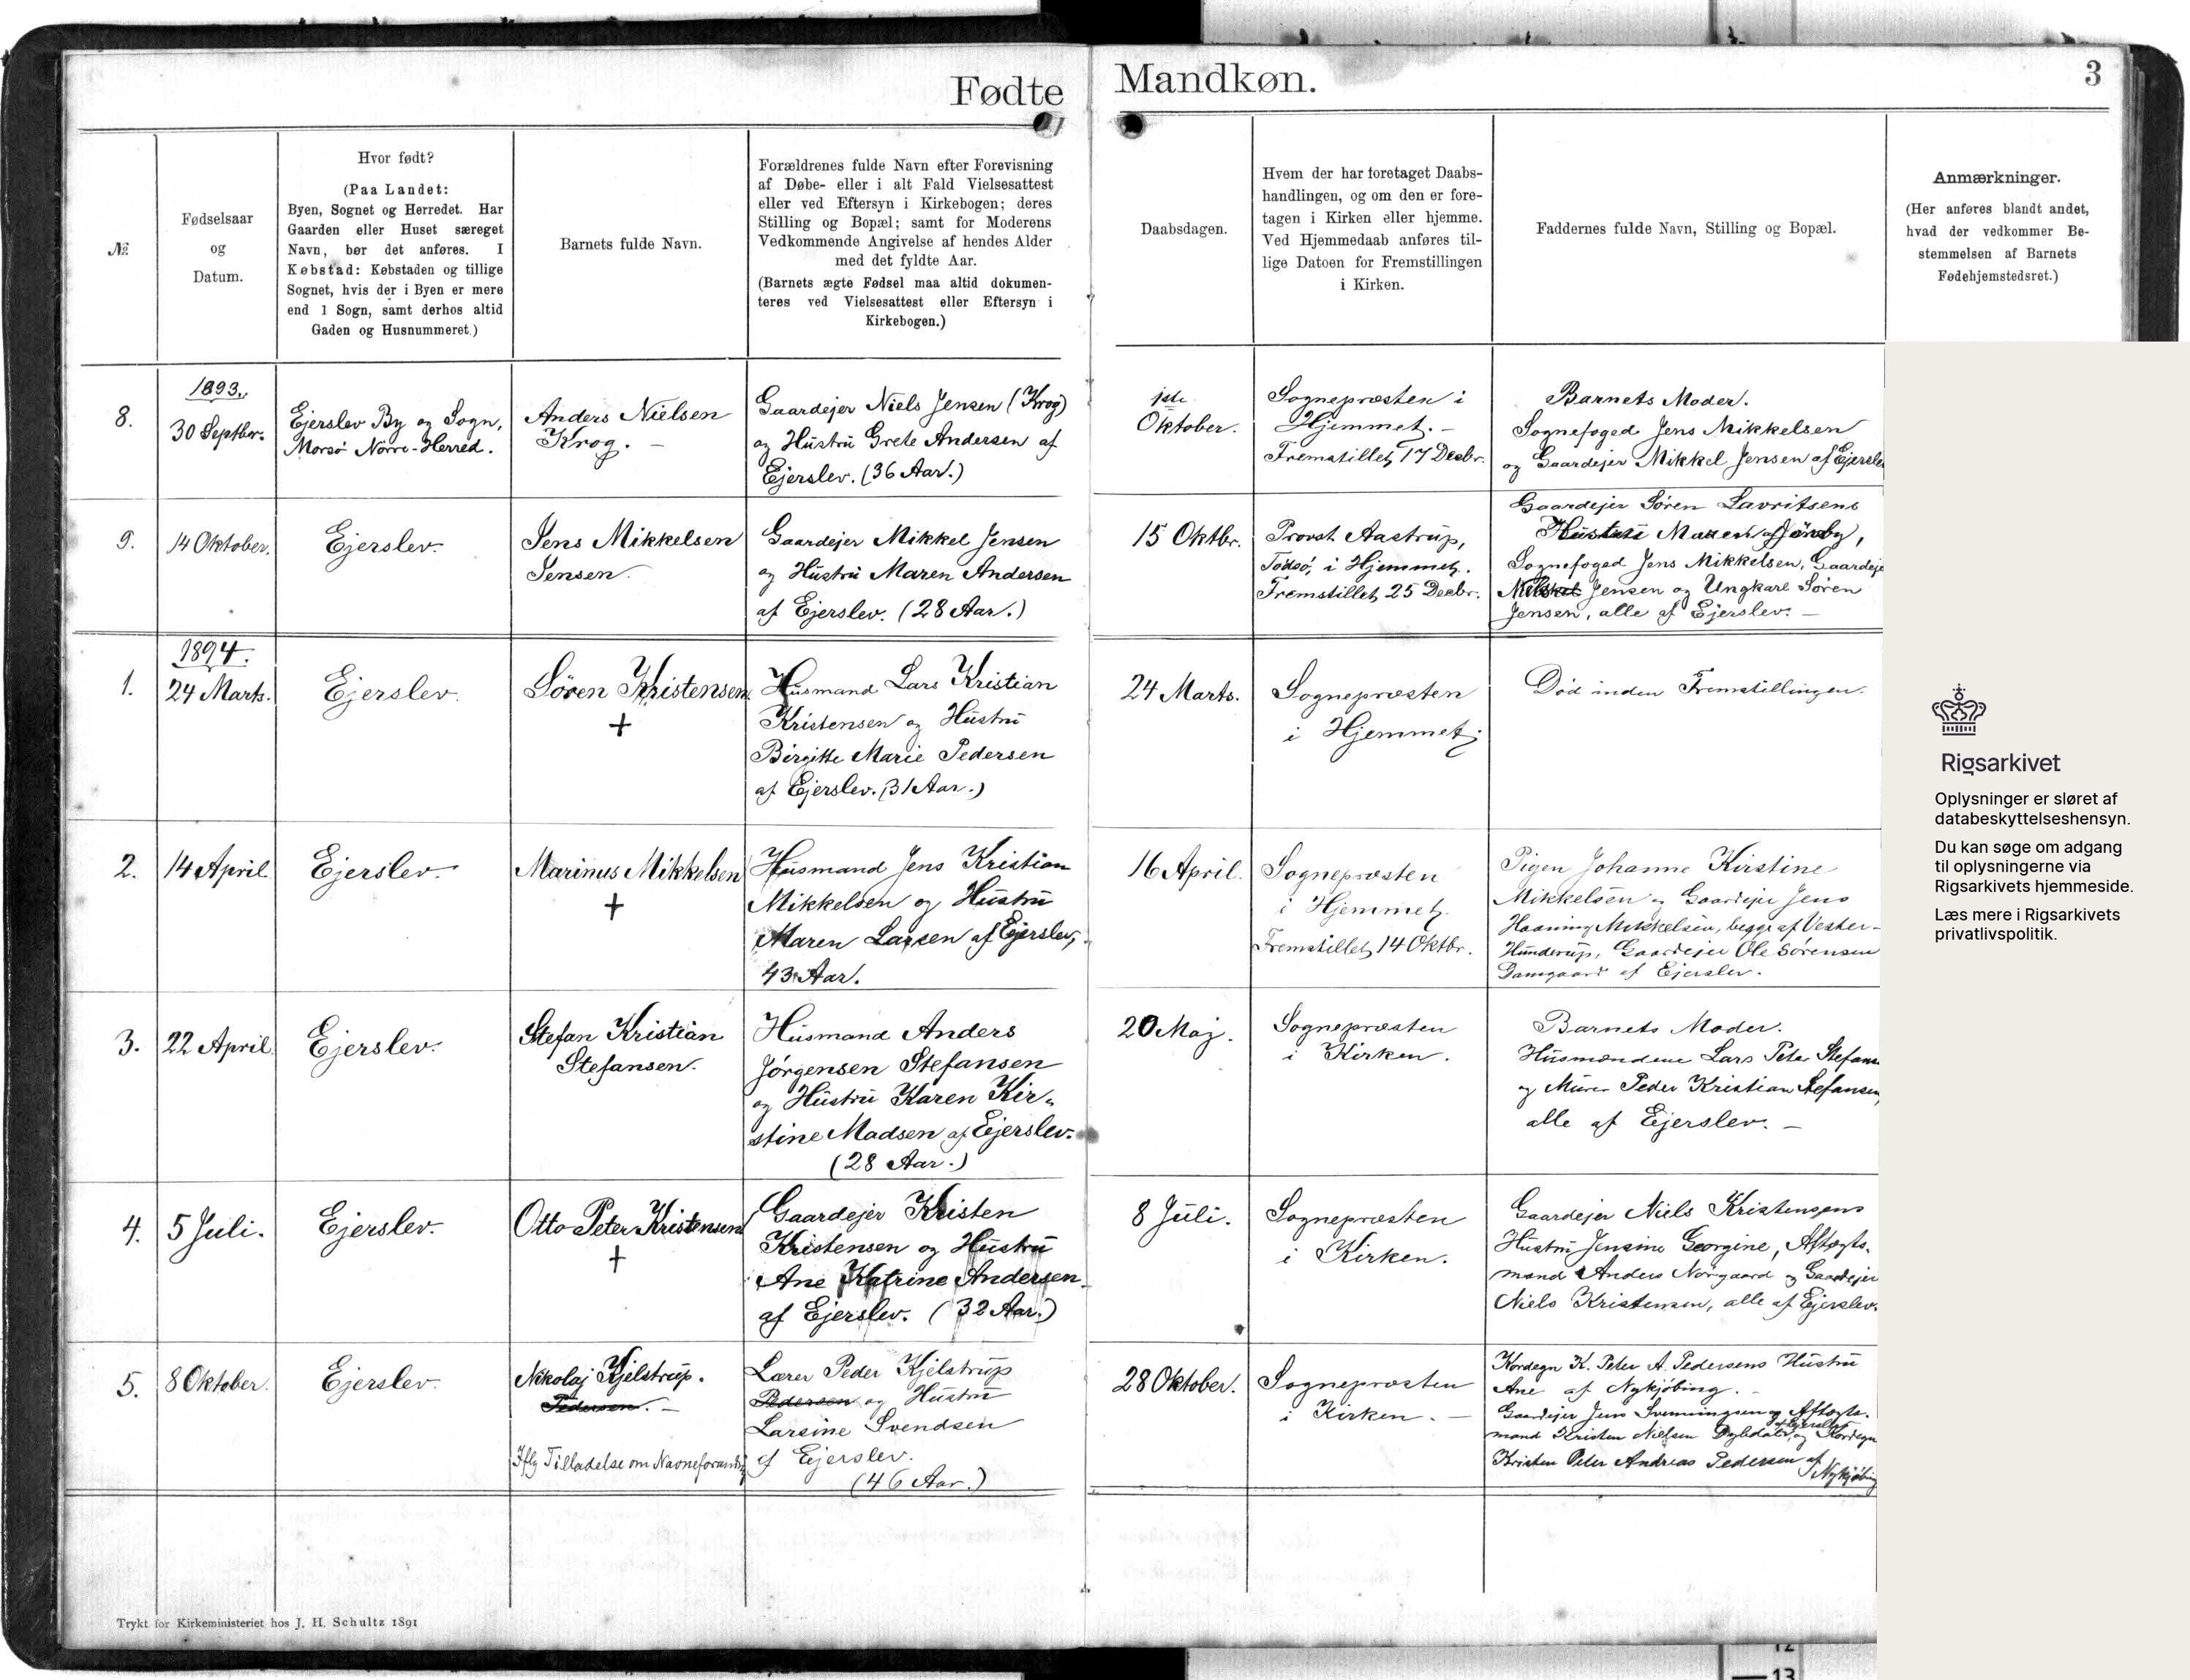 Fødte Mandkøn.
3
№
Fødselsaar
og
Datum.
Hvor født?
(Paa Landet:
Byen, Sognet og Herredet. Har
Gaarden eller Huset særeget
Navn, bør det anføres. I
Købstad: Købstaden og tillige
Sognet, hvis der i Byen er mere
end 1 Sogn, samt derhos altid
Gaden og Husnummeret.)
Barnets fulde Navn.
Forældrenes fulde Navn efter Forevisning
af Døbe- eller i alt Fald Vielsesattest
eller ved Eftersyn i Kirkebogen; deres
Stilling og Bopæl; samt for Moderens
Vedkommende Angivelse af hendes Alder
med det fyldte Aar.
(Barnets ægte Fødsel maa altid dokumen-
teres ved Vielsesattest eller Eftersyn i
Kirkebogen.)
Daabsdagen.
Hvem der har foretaget Daabs-
handlingen, og om den er fore-
tagen i Kirken eller hjemme.
Ved Hjemmedaab anføres til-
lige Datoen for Fremstillingen
i Kirken.
Faddernes fulde Navn, Stilling og Bopæl.
Anmærkninger.
(Her anføres blandt andet,
hvad der vedkommer Be-
stemmelsen af Barnets
Fødehjemstedsret.)
8.
1893.
30 Septbr.
Ejerslev By og Sogn,
Morsø Nörre-Herred.
Anders Nielsen
Krog. –
Gaardejer Niels Jensen (Krog)
og Hustru Grete Andersen af
Ejerslev. (36 Aar.)
1ste
Oktober.
Sognepræsten i
Hjemmet. –
Fremstillet 17 Decbr.
Barnets Moder.
Sognefoged Jens Mikkelsen
og Gaardejer Mikkel Jensen af Ejerslev
9.
14 Oktober.
Ejerslev.
Jens Mikkelsen
Jensen.
Gaardejer Mikkel Jensen
og Hustru Maren Andersen
af Ejerslev. (28 Aar.)
15 Oktbr.
Provst Aastrup,
Tödsö, i Hjemmet.
Fremstillet 25 Decbr.
Gaardejer Sören Lavritsens
Hustru Maren af Jönsby,
Sognefoged Jens Mikkelsen, Gaardeje
Jensen og Ungkarl Sören
Jensen, alle af Ejerslev. –
1.
1894.
24 Marts.
Ejerslev.
Sören Kristensen
+
Husmand Lars Kristian
Kristensen og Hustru
Birgitte Marie Pedersen
af Ejerslev. (31 Aar.)
24 Marts.
Sognepræsten
i Hjemmet.
Död inden Fremstillingen.
2.
14 April.
Ejerslev.
Marinus Mikkelsen
+
Husmand Jens Kristian
Mikkelsen og Hustru
Maren Larsen af Ejerslev,
43 Aar.
16 April.
Sognepræsten
i Hjemmet.
Fremstillet 14 Oktbr.
Pigen Johanne Kirstine
Mikkelsen og Gaardejer Jens
Haaning Mikkelsen, begge af Vester-
Hunderup, Gaardejer Ole Sörensen
Damgaard af Ejerslev.
3.
22 April.
Ejerslev.
Stefan Kristian
Stefansen.
Husmand Anders
Jörgensen Stefansen
og Hustru Karen Kir-
stine Madsen af Ejerslev.
(28 Aar.)
20 Maj.
Sognepræsten
i Kirken.
Barnets Moder.
Husmændene Lars Peter Stefans
og Murer Peder Kristian Stefansen,
alle af Ejerslev. –
4.
5 Juli.
Ejerslev.
Otto Peter Kristensen
+
Gaardejer Kristen
Kristensen og Hustru
Ane Katrine Andersen
af Ejerslev. (32 Aar.)
8 Juli.
Sognepræsten
i Kirken.
Gaardejer Niels Kristensens
Hustru Jensine Georgine, Aftægts-
mand Anders Nörgaard og Gaardejer
Niels Kristensen, alle af Ejerslev.
5.
8 Oktober.
Ejerslev.
Nikolaj Kjelstrup.
Pedersen. –
Iflg Tilladelse om Navneforandring
Lærer Peder Kjelstrup
Pedersen og Hustru
Larsine Svendsen
af Ejerslev.
(46 Aar.)
28 Oktober.
Sognepræsten
i Kirken. –
Kordegn K. Peter A. Pedersens Hustru
Ane af Nykjöbing. –
Gaardejer Jens Svenningsen og Aftægts-
mand Kristen Nielsen Dybdahl, af Ejerslev og Kordegn
Kristen Peter Andreas Pedersen af
Nykjöbing
Trykt for Kirkeministeriet hos J. H. Schultz 1891
Rigsarkivet
Oplysninger er sløret af
databeskyttelseshensyn.
Du kan søge om adgang
til oplysningerne via
Rigsarkivets hjemmeside.
Læs mere i Rigsarkivets
privatlivspolitik.
12
13